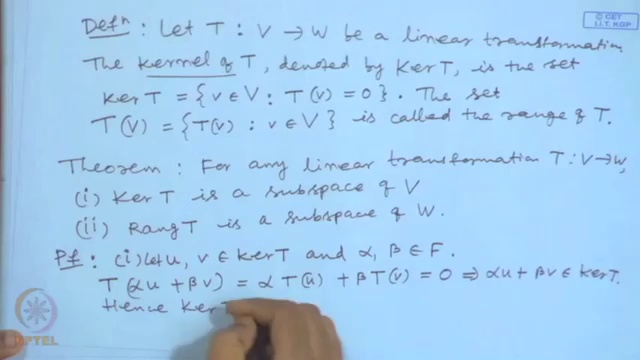 © CET
I.I.T. KGP
Defⁿ : Let T : V → W be a linear transformation
The kernel of T, denoted by Ker T, is the set
Ker T = {v ∈ V : T(v) = 0}. The set
T(V) = {T(v) : v ∈ V} is called the range of T.
Theorem : For any linear transformation T : V → W,
(i) Ker T is a subspace of V
(ii) Rang T is a subspace of W.
Pf : (i) Let u, v ∈ Ker T and α, β ∈ F.
T(αu + βv) = α T(u) + β T(v) = 0 ⇒ αu + βv ∈ Ker T.
Hence Ker T
NPTEL